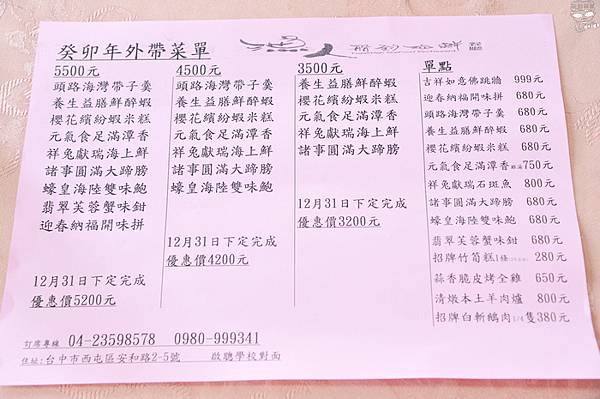 癸卯年外帶菜單
5500元
頭路海灣帶子羹
養生益膳鮮醉蝦
櫻花繽紛蝦米糕
元氣食足滿潭香
祥兔獻瑞海上鮮
諸事圓滿大蹄膀
蠔皇海陸雙味鮑
翡翠芙蓉蟹味鉗
迎春納福開味拼
12月31日下定完成
優惠價5200元
4500元
頭路海灣帶子羹
養生益膳鮮醉蝦
櫻花繽紛蝦米糕
元氣食足滿潭香
祥兔獻瑞海上鮮
諸事圓滿大蹄膀
蠔皇海陸雙味鮑
12月31日下定完成
優惠價4200元
3500元
養生益膳鮮醉蝦
櫻花繽紛蝦米糕
元氣食足滿潭香
祥兔獻瑞海上鮮
諸事圓滿大蹄膀
12月31日下定完成
優惠價3200元
單點
吉祥如意佛跳牆 999元
迎春納福開味拼 680元
頭路海灣帶子羹 680元
養生益膳鮮醉蝦 680元
櫻花繽紛蝦米糕 680元
元氣食足滿潭香 750元
祥兔獻瑞石斑魚 800元
諸事圓滿大蹄膀 680元
蠔皇海陸雙味鮑 680元
翡翠芙蓉蟹味鉗 680元
招牌竹筍糕1條 280元
蒜香脆皮烤全雞 650元
清燉本土羊肉爐 800元
招牌白斬鵝肉1/4隻380元
訂席專線 04-23598578 0980-999341
住址:台中市西屯區安和路2-5號 啟聰學校對面